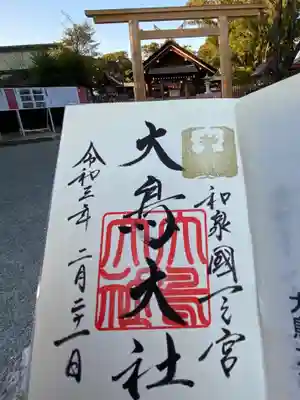 和泉國一之宮
大鳥大社
令和三年二月二十一日